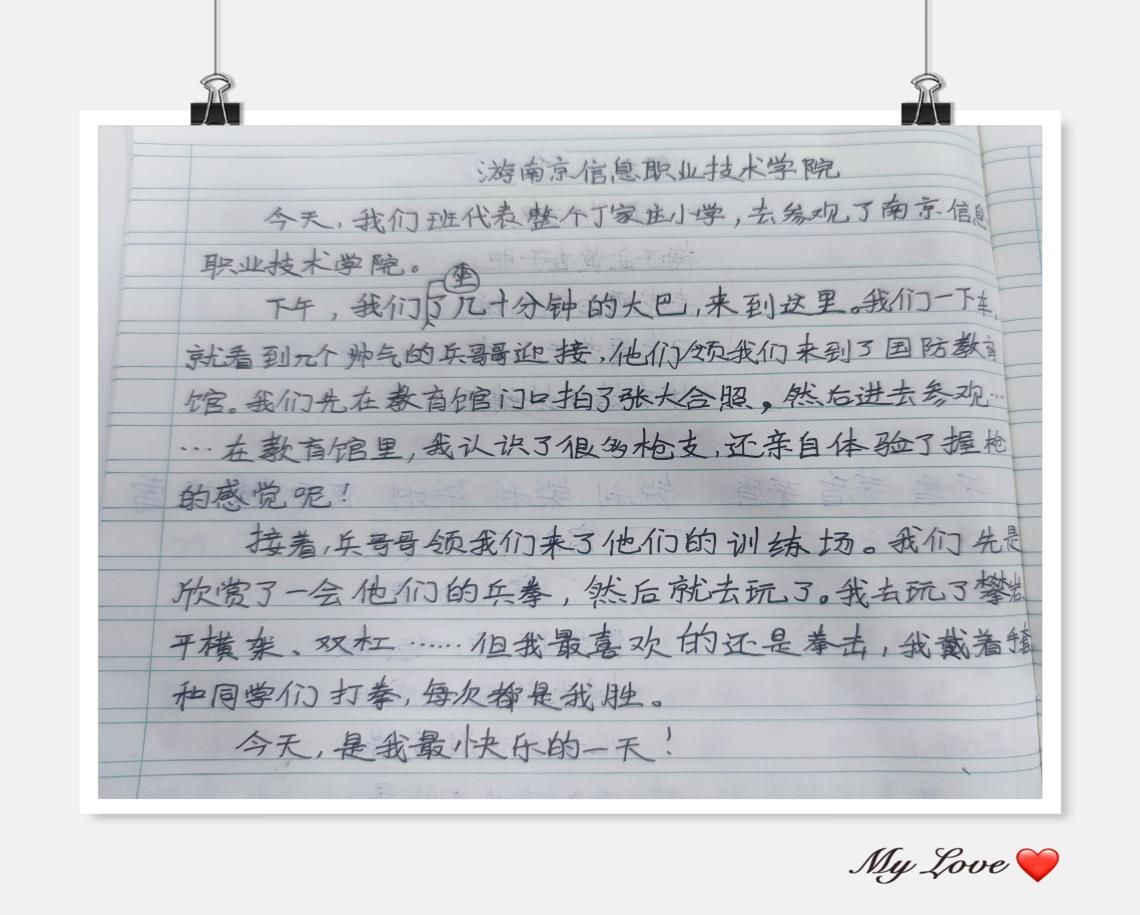 游南京信息职业技术学院
今天，我们班代表整个丁家庄小学，去参观了南京信息
职业技术学院。
下午，我们坐了几十分钟的大巴，来到这里。我们一下车，
就看到几个帅气的兵哥哥迎接，他们领我们来到了国防教育
馆。我们先在教育馆门口拍了张大合照，然后进去参观…
…在教育馆里，我认识了很多枪支，还亲自体验了握枪
的感觉呢！
接着，兵哥哥领我们来了他们的训练场。我们先是
欣赏了一会他们的兵拳，然后就去玩了。我去玩了攀岩
平横架、双杠……但我最喜欢的还是拳击，我戴着手套
和同学们打拳，每次都是我胜。
今天，是我最快乐的一天！
My Love